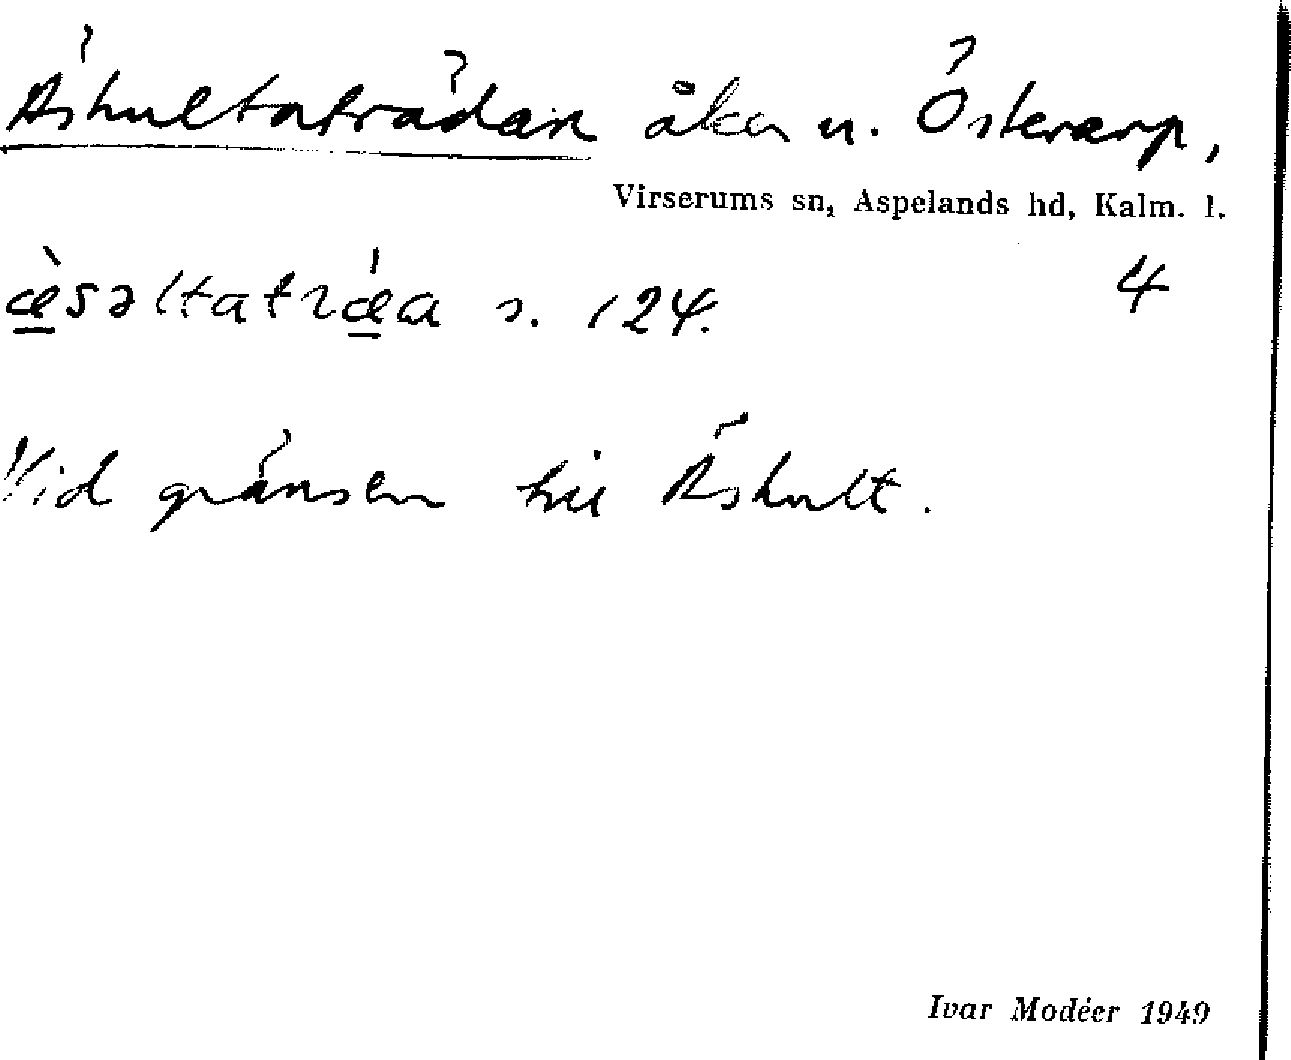 Äshultaträdan åker u. Österarp,
Virserums sn, Aspelands hd, Kalm. l.
æ̀səltatræ̍a s. 124. 4
Vid gränsen till Äshult.
Ivar Modéer 1949